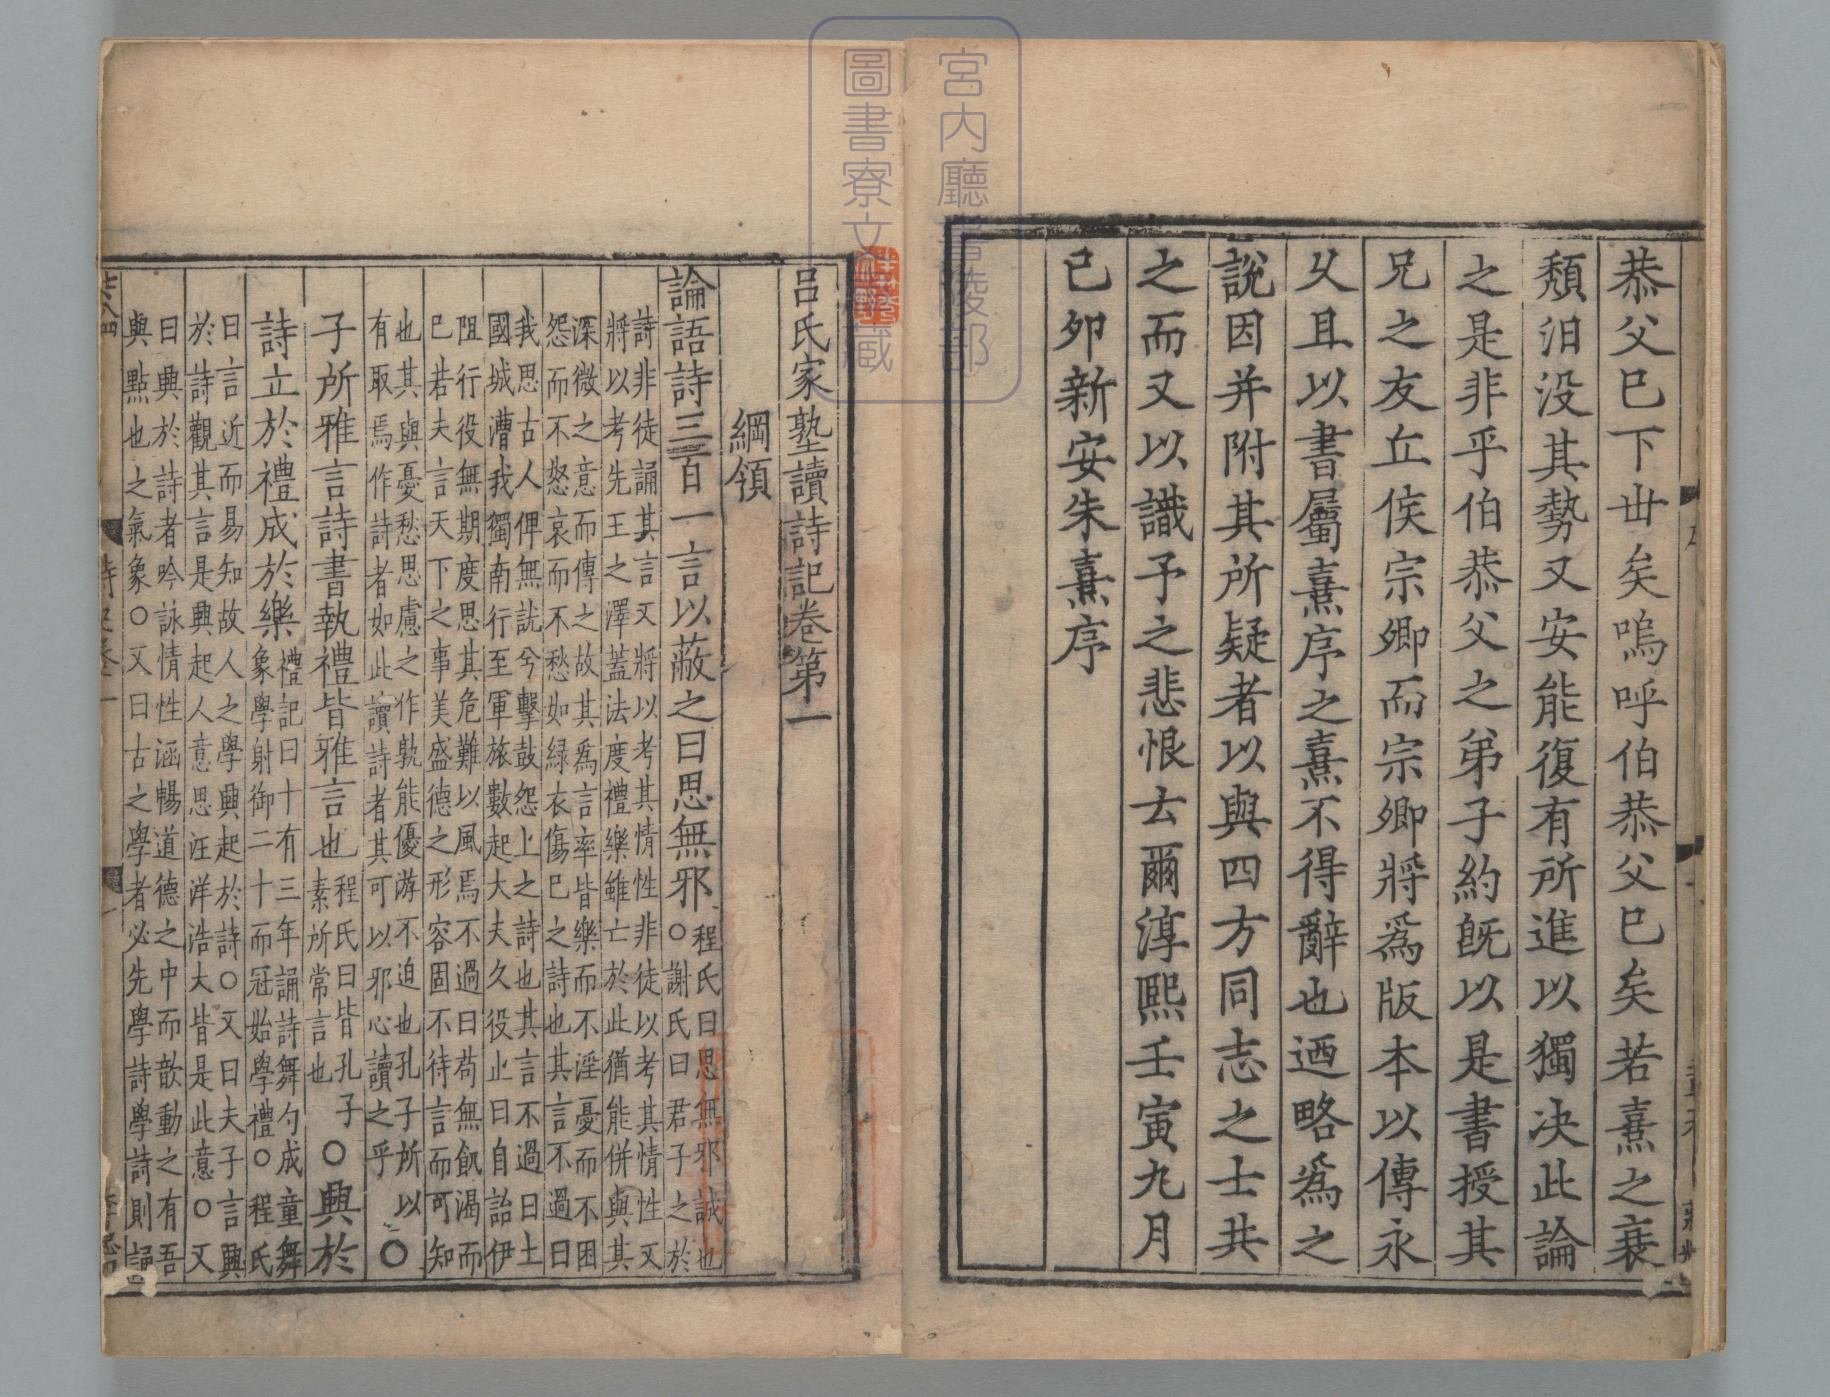 恭父已下丗矣嗚呼伯恭父已矣若熹之衰
頹汨没其勢又安能復有所進以獨决此論
之是非乎伯恭父之弟子約旣以是書授其
兄之友丘侯宗卿而宗卿將爲版本以傳永
乆且以書屬熹序之熹不得辭也迺略爲之
說因并附其所疑者以與四方同志之士共
之而又以識予之悲恨云爾淳熙壬寅九月
己卯新安朱熹序
呂氏家塾讀詩記卷第一
綱領
論語詩三百一言以蔽之曰思無邪
程氏曰思無邪誠也
○謝氏曰君子之於
詩非徒誦其言又將以考其情性非徒以考其情性又
將以考先王之澤蓋法度禮樂雖亡於此猶能併與其
深微之意而傳之故其爲言率皆樂而不淫憂而不困
怨而不怒哀而不愁如緑衣傷已之詩也其言不過曰
我思古人俾無訧兮擊鼓怨上之詩也其言不過曰土
國城漕我獨南行至軍旅數起大夫久役止曰自詒伊
阻行役無期度思其危難以風焉不過曰苟無飢渴而
已若夫言天下之事美盛德之形容固不待言而可知
也其與憂愁思慮之作孰能優游不迫也孔子所以
有取焉作詩者如此讀詩者其可以邪心讀之乎
○
子所雅言詩書執禮皆雅言也
程氏曰皆孔子
素所常言也
○興於
詩立於禮成於樂
禮記曰十有三年誦詩舞勺成童舞
象學射御二十而冠始學禮○程氏
曰言近而易知故人之學興起於詩○又曰夫子言興
於詩觀其言是興起人意思汪洋浩大皆是此意○又
曰興於詩者吟詠情性涵暢道德之中而歆動之有吾
與點也之氣象○又曰古之學者必先學詩學詩則誦
宮内廳書陵部
圖書寮文庫藏